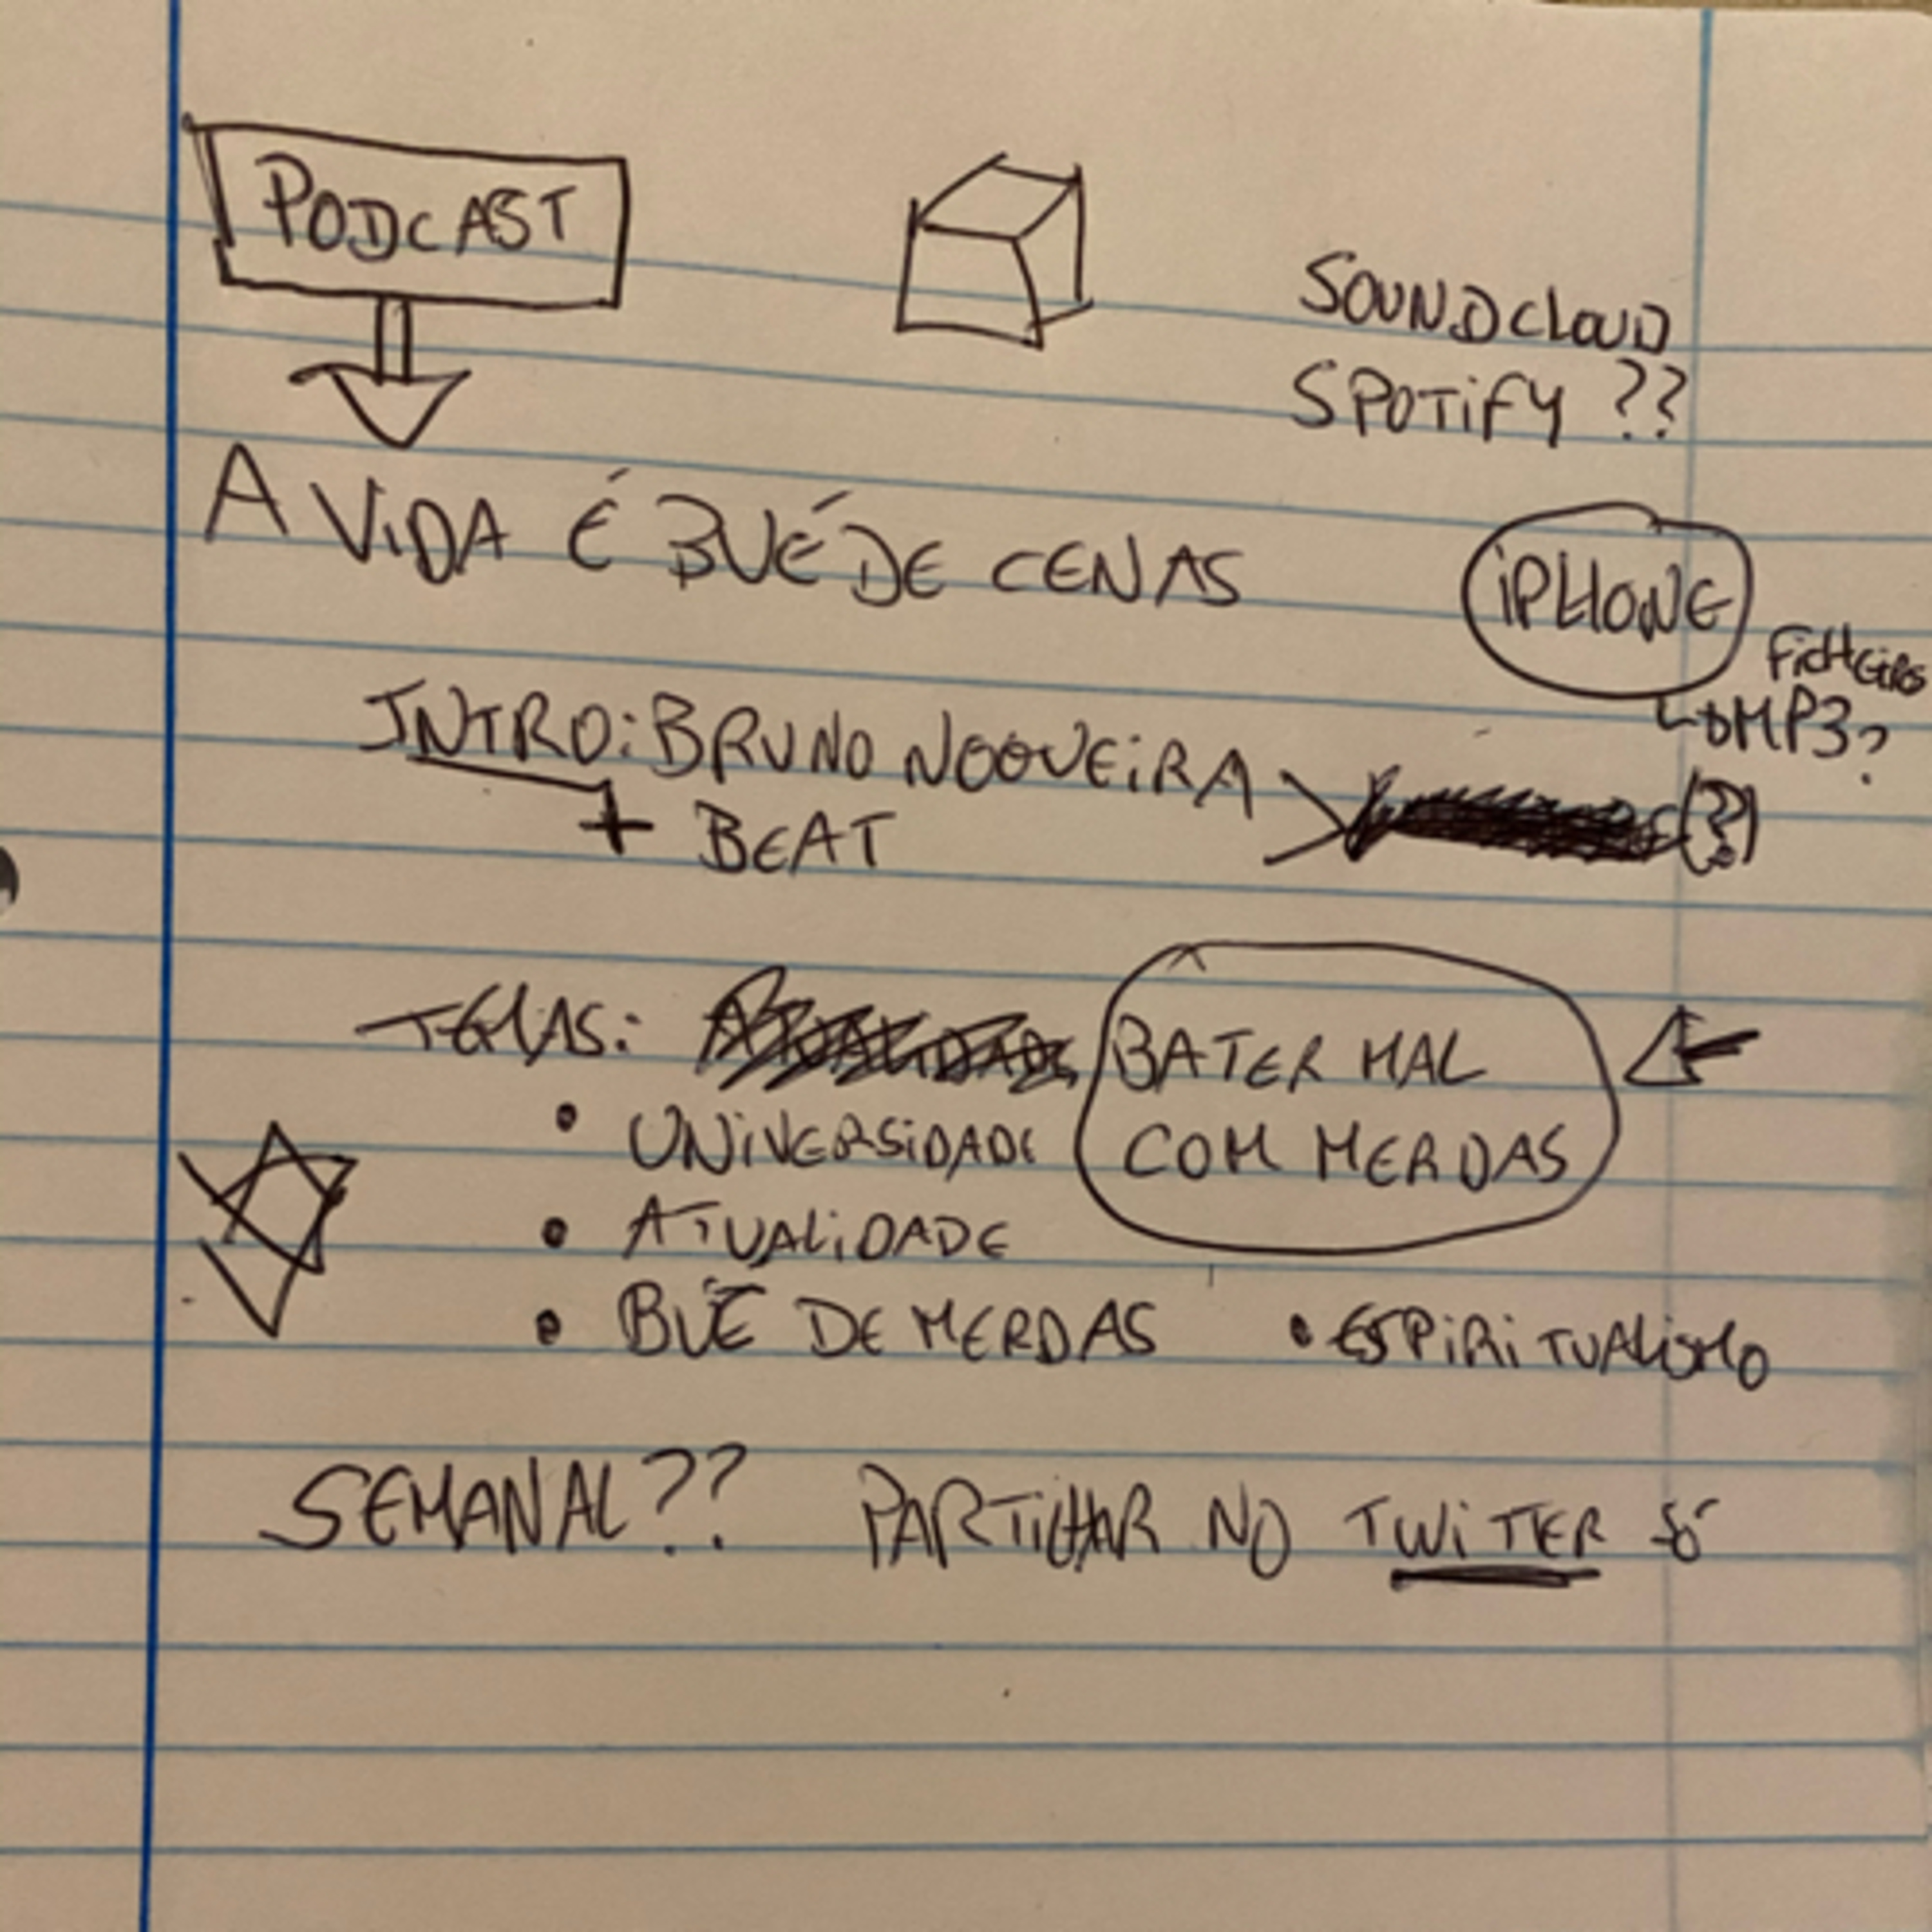 PODCAST
SOUNDCLOUD
SPOTIFY ??
A VIDA É BUÉ DE CENAS
IPHONE
FICHEIROS
MP3?
INTRO: BRUNO NOGUEIRA
+ BEAT
(?)
TEMAS: BATER MAL
COM MERDAS
• UNIVERSIDADE
• ATUALIDADE
• BUÉ DE MERDAS • ESPIRITUALISMO
SEMANAL?? PARTILHAR NO TWITTER SÓ